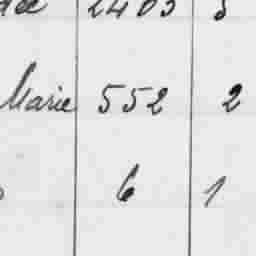 2403
Marie 552 2
6 1